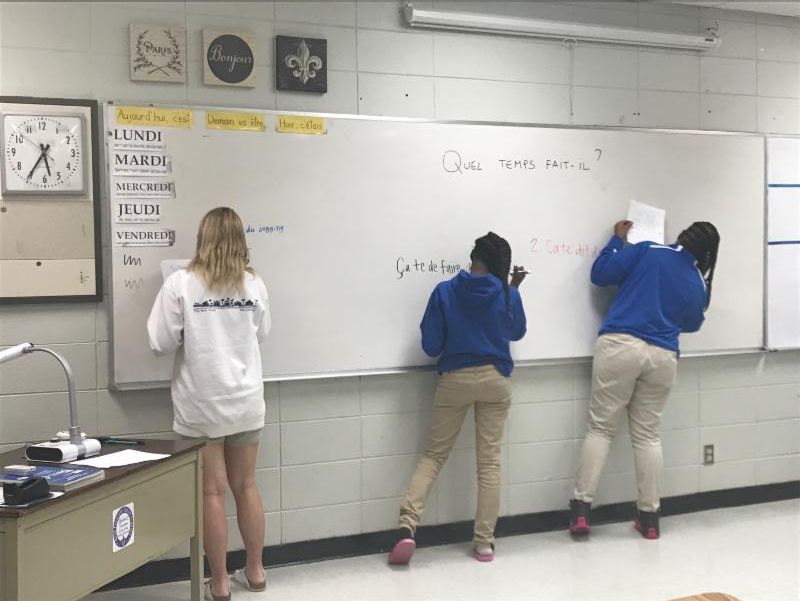 PARIS
Bonjour
Aujourd'hui, c'est
Demain va être
Hier, c'était
LUNDI
MARDI
MERCREDI
JEUDI
VENDREDI
QUEL TEMPS FAIT-IL ?
Ça te de faire
2 Ça te dit d
12
1
2
3
4
5
6
7
8
9
10
11